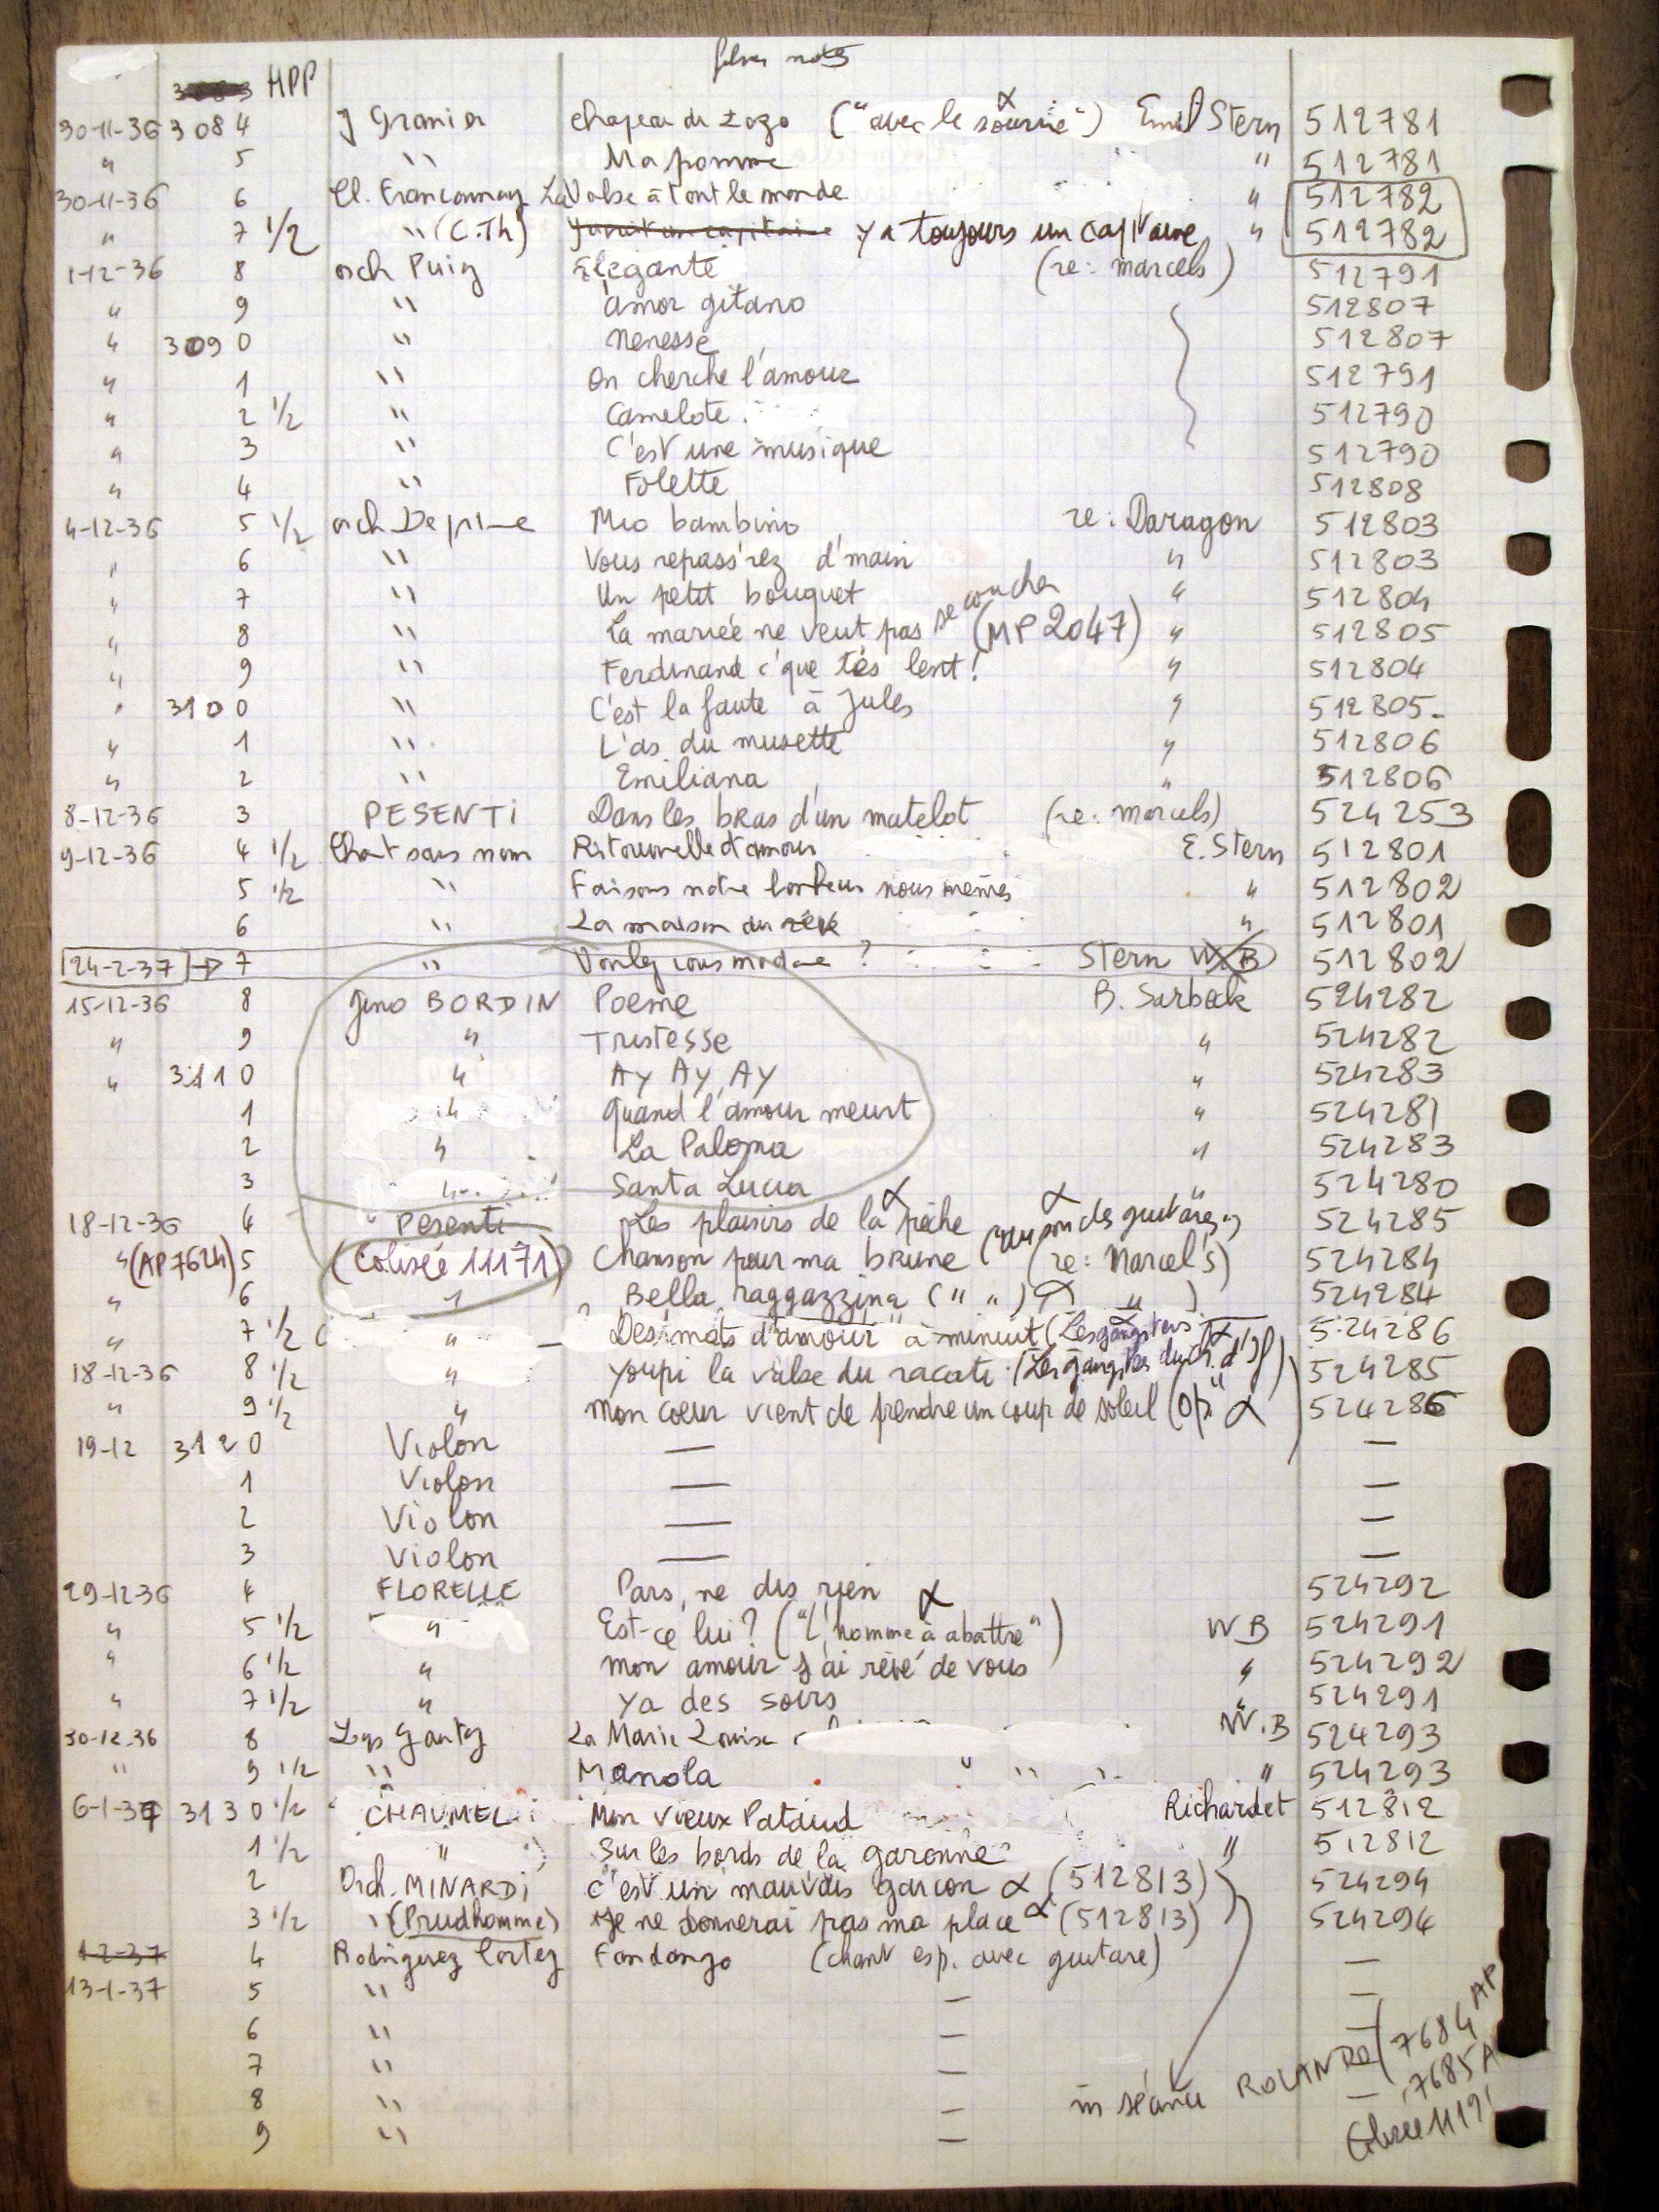 films notés
HPP
30-11-36 3084 J Granier Chapeau de Zozo ("avec le sourire") α Emil Stern 512781
" 5 " Ma pomme " 512781
30-11-36 6 Cl. Francournay La Valse à tout le monde " 512782
" 7 1/2 " (C.Th) y a toujours un capitaine " 512782
1-12-36 8 orch Puig Elegante (re: marcels) 512791
" 9 " amor gitano 512807
" 3090 " Nenesse 512807
" 1 " On cherche l'amour 512791
" 2 1/2 " Camelote 512790
" 3 " C'est une musique 512790
" 4 " Folette 512808
4-12-36 5 1/2 orch Deprince Mio bambino re: Daragon 512803
" 6 " Vous repass'rez d'main " 512803
" 7 " Un petit bouquet " 512804
" 8 " La mariée ne veut pas se coucher (MP 2047) " 512805
" 9 " Ferdinand c'que t'es lent! " 512804
" 3100 " C'est la faute à Jules " 512805
" 1 " L'as du musette " 512806
" 2 " Emiliana " 512806
8-12-36 3 PESENTI Dans les bras d'un matelot (re: marcels) 524253
9-12-36 4 1/2 Chant sans nom Ritournelle d'amour E. Stern 512801
5 1/2 " Faisons notre bonheur nous mêmes " 512802
6 " La maison du rêve " 512801
24-2-37 → 7 " Voulez vous madame ? Stern W.B 512802
15-12-36 8 Gino BORDIN Poeme B. Sarbek 524282
" 9 " Tristesse " 524282
" 3110 " AY AY AY " 524283
1 " Quand l'amour meurt " 524281
2 " La Paloma " 524283
3 " Santa Lucia " 524280
18-12-36 4 Pesenti Les plaisirs de la pêche α 524285
" (AP7624) 5 (Colisée 11171) Chanson pour ma brune ("au son des guitares") α (re: Marcel's) 524284
" 6 " Bella raggazzina (" ") α " ) 524284
" 7 1/2 " Des mots d'amour à minuit (Les gangsters α 524286
18-12-36 8 1/2 " Youpi la valse du racati (Les gangsters du ch. d'If) α 524285
" 9 1/2 " Mon coeur vient de prendre un coup de soleil (Op. " α 524286
19-12 3120 Violon — —
1 Violon — —
2 Violon — —
3 Violon — —
29-12-36 4 FLORELLE Pars, ne dis rien 524292
" 5 1/2 " Est-ce lui? ("L'homme à abattre") α WB 524291
" 6 1/2 " Mon amour j'ai rêvé de vous " 524292
" 7 1/2 " Ya des soirs " 524291
30-12-36 8 Lys Gauty La Marie Louise W.B 524293
" 9 1/2 " Manola " " " 524293
6-1-37 3130 1/2 CHAUMEL Mon vieux Pataud Richardet 512812
1 1/2 " Sur les bords de la garonne " 512812
2 Orch. MINARDI C'est un mauvais garcon α (512813) 524294
3 1/2 " (Prudhomme) Je ne donnerai pas ma place α (512813) 524294
12-37 4 Rodriguez Cortez Fandango (chant esp. avec guitare) —
13-1-37 5 " — —
6 " — —
7 " —
8 " — —
9 " —
in séance ROLANDO (7684 AP
7685 A
Colisée 1119